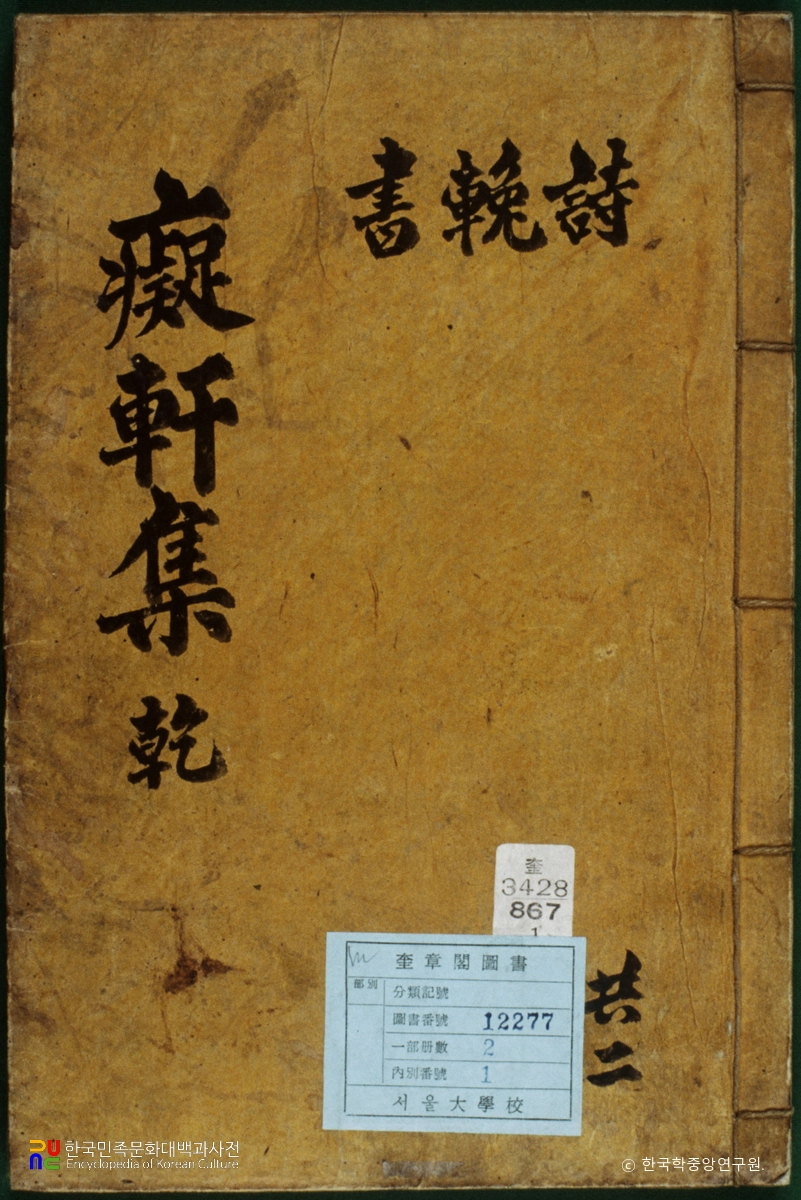 詩輓書
癡軒集 乾
共二
奎
3428
867
1
奎章閣圖書
部別
分類記號
圖書番號 12277
一部册數 2
內別番號 1
서울大學校
한국민족문화대백과사전
Encyclopedia of Korean Culture
ⓒ 한국학중앙연구원.